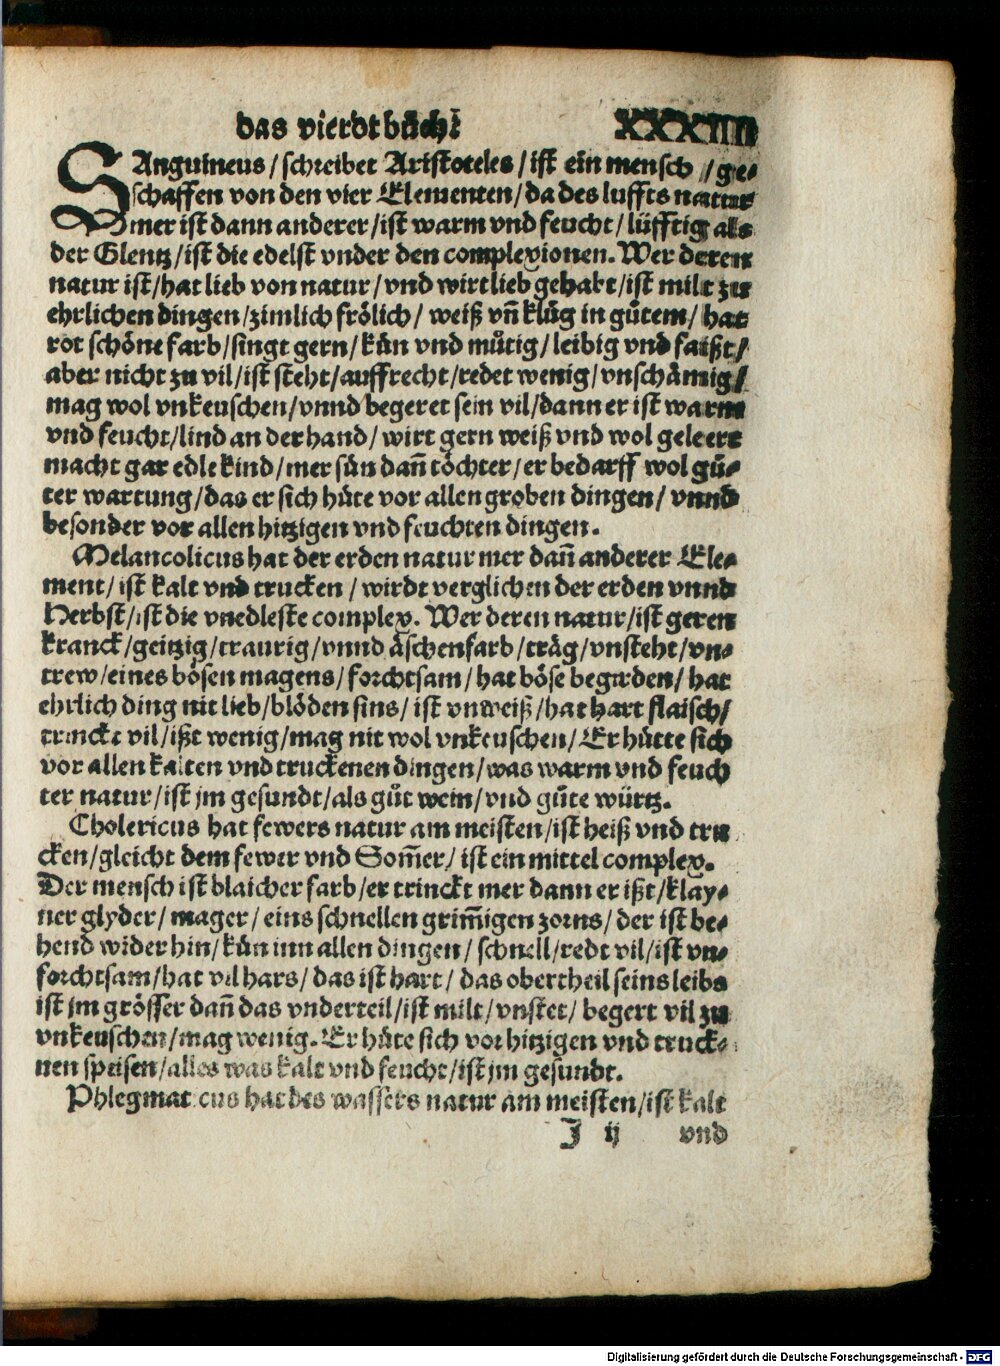 das vierdt bůch: XXXIIII
SAnguineus / schreibet Aristoteles / ist ein mensch / ge⸗
schaffen von den vier Elementen / da des luffts natur
mer ist dann anderer / ist warm vnd feucht / lüfftig als
der Glentz / ist die edelst vnder den complexionen. Wer deren
natur ist / hat lieb von natur / vnd wirt lieb gehabt / ist milt zu
ehrlichen dingen / zimlich frölich / weiß vn̄ klůg in gůtem / hat
rot schöne farb / singt gern / kün vnd můtig / leibig vnd faißt /
aber nicht zu vil / ist steht / auffrecht / redet wenig / vnschämig /
mag wol vnkeuschen / vnnd begeret sein vil / dann er ist warm
vnd feucht / lind an der hand / wirt gern weiß vnd wol geleert
macht gar edle kind / mer sün dan̄ töchter / er bedarff wol gů⸗
ter wartung / das er sich hüte vor allen groben dingen / vnnd
besonder vor allen hitzigen vnd feuchten dingen.
Melancolicus hat der erden natur mer dan̄ anderer Ele⸗
ment / ist kalt vnd trucken / wirdt verglichen der erden vnnd
Herbst / ist die vnedleste complex. Wer deren natur / ist geren
kranck / geitzig / traurig / vnnd äschenfarb / träg / vnsteht / vn⸗
trew / eines bösen magens / forchtsam / hat böse begirden / hat
ehrlich ding nit lieb / blöden sins / ist vnweiß / hat hart flaisch /
trinckt vil / ißt wenig / mag nit wol vnkeuschen / Er hütte sich
vor allen kalten vnd truckenen dingen / was warm vnd feuch
ter natur / ist jm gesundt / als gůt wein / vnd gůte würtz.
Cholericus hat fewers natur am meisten / ist heiß vnd tru
cken / gleicht dem fewer vnd Som̄er / ist ein mittel complex.
Der mensch ist blaicher farb / er trinckt mer dann er ißt / klay⸗
ner glyder / mager / eins schnellen grim̄igen zorns / der ist be⸗
hend wider hin / kün inn allen dingen / schnell / redt vil / ist vn⸗
forchtsam / hat vil hars / das ist hart / das obertheil seins leibs
ist jm grösser dan̄ das vnderteil / ist milt / vnstet / begert vil zu
vnkeuschen / mag wenig. Er hüte sich vor hitzigen vnd truck⸗
nen speisen / alles was kalt vnd feucht / ist jm gesundt.
Phlegmaticus hat des wassers natur am meisten / ist kalt
J ij vnd
Digitalisierung gefördert durch die Deutsche Forschungsgemeinschaft - DFG